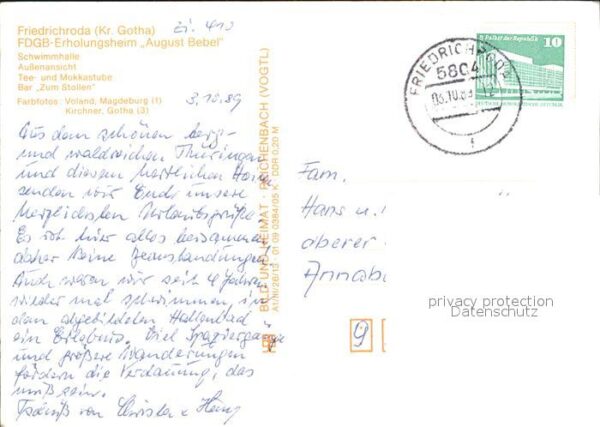 Friedrichroda (Kr. Gotha)
FDGB-Erholungsheim „August Bebel"
Schwimmhalle
Außenansicht
Tee- und Mokkastube
Bar „Zum Stollen"
Farbfotos: Voland, Magdeburg (1)
Kirchner, Gotha (3)
Zi. 413
3.10.89
Aus dem schönen berg-
und waldreichen Thüringen
und diesem herrlichen Haus
senden wir Euch unsere
herzlichsten Urlaubsgrüße.
Es ist hier alles beisammen
daher keine Beanstandungen!
Auch waren wir seit 4 Jahren
wieder mal schwimmen, in
dem abgebildeten Hallenbad
ein Erlebnis. Viel Spazierengehen
und größere Wanderungen
fördern die Verdauung, das
muß sein.
Tschüß von Christa u. Heinz
BILD UND HEIMAT · REICHENBACH (VOGTL)
A1/III/26/13 01 09 0384/05 K DDR 0,20 M
Palast der Republik
10
FRIEDRICHRODA
5804
03.10.89
f
Fam.
Hans u.
oberer
Annab
9
privacy protection
Datenschutz